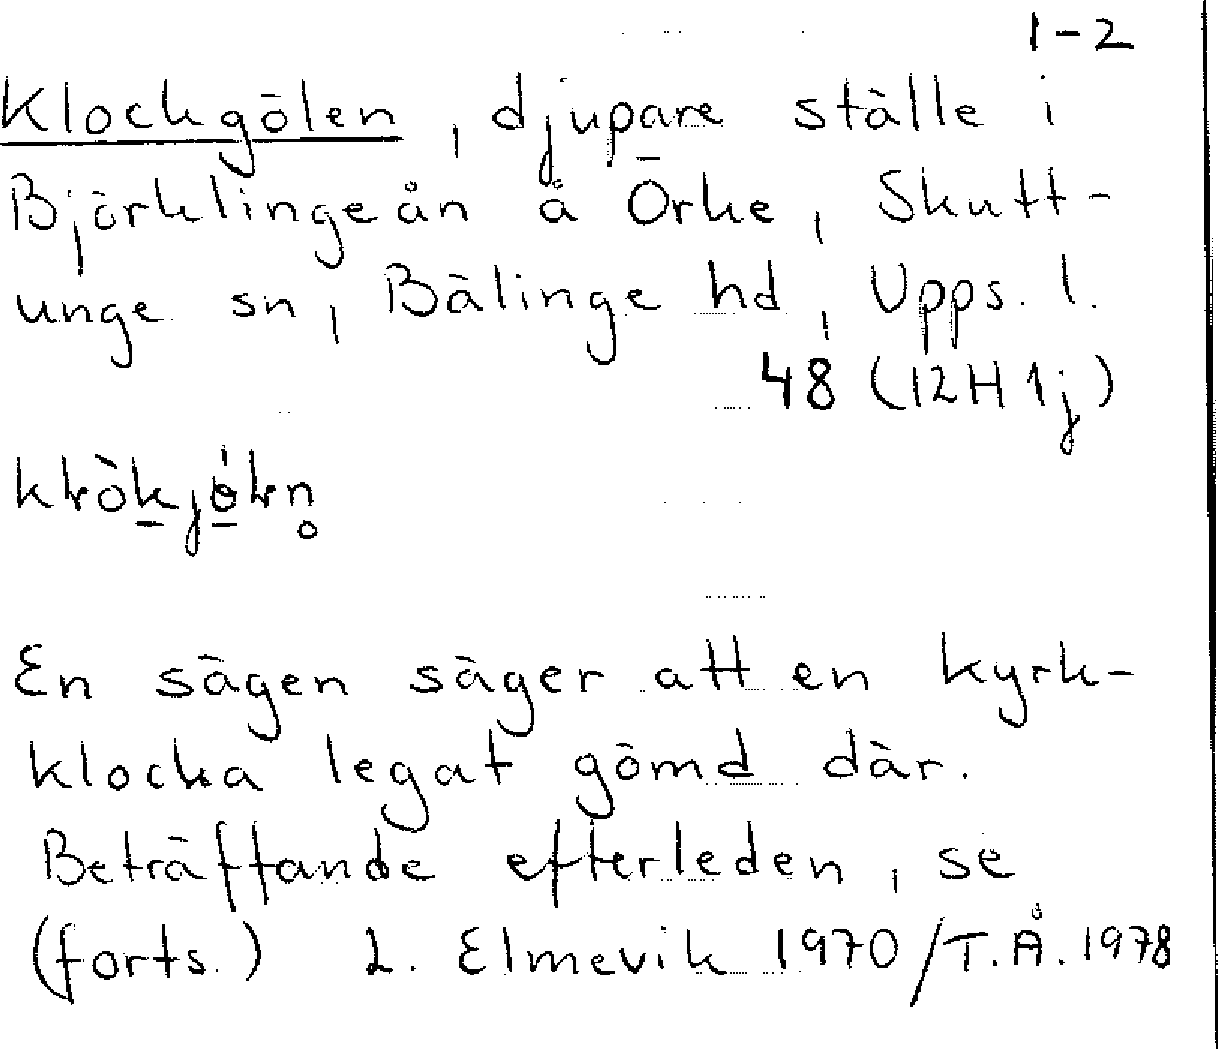 1-2
Klockgölen, djupare ställe i
Björklingeån å Örke, Skutt-
unge sn, Bälinge hd, Upps. l.
48 (12H 1j)
En sägen säger att en kyrk-
klocka legat gömd där.
Beträffande efterleden, se
(forts.) L. Elmevik 1970/T.Å. 1978